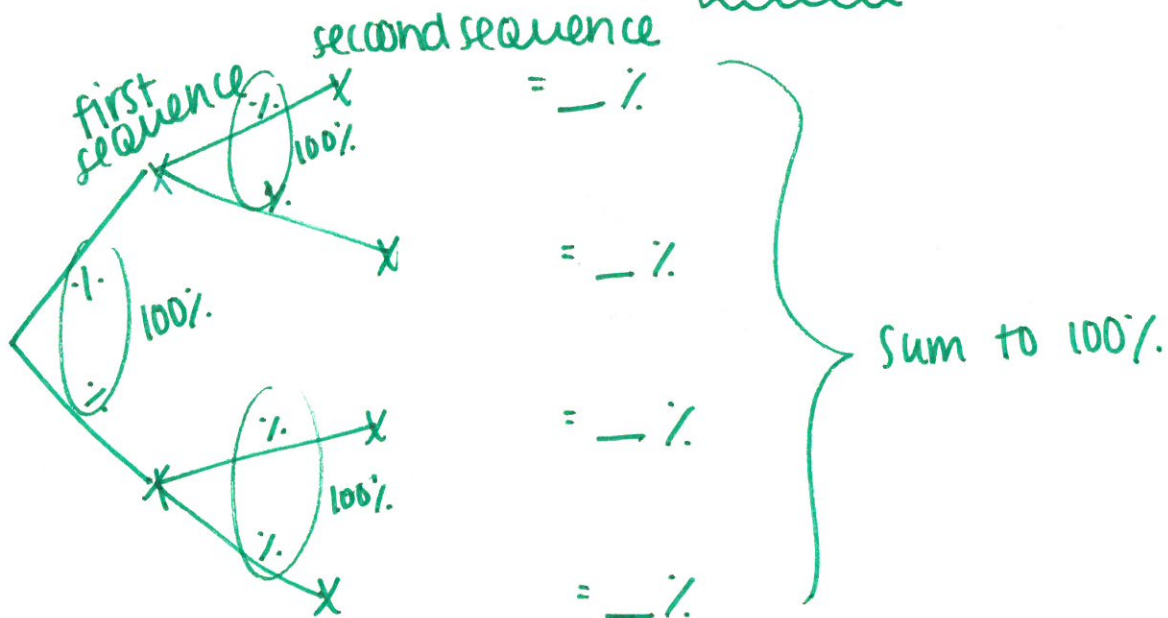 seccond sequence
first
sequence
%
100%
%
= __ %
= __ %
%
100%
%
sum to 100%
%
100%
%
= __ %
= __ %